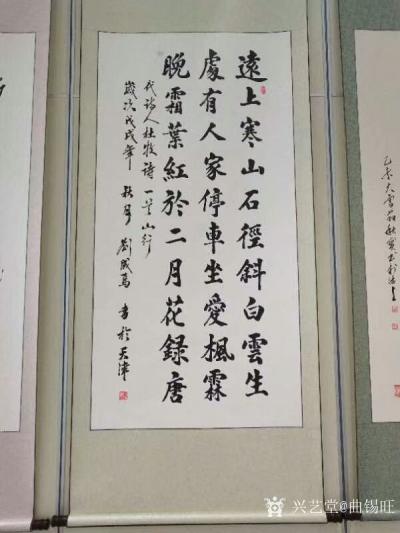 遠上寒山石徑斜白雲生
處有人家停車坐愛楓霖
晚霜葉紅於二月花録唐
代詩人杜牧詩一首山行
歲次戊戌年 秋月 劉成 書於天津
乙未大雪
兴艺堂@曲锡旺